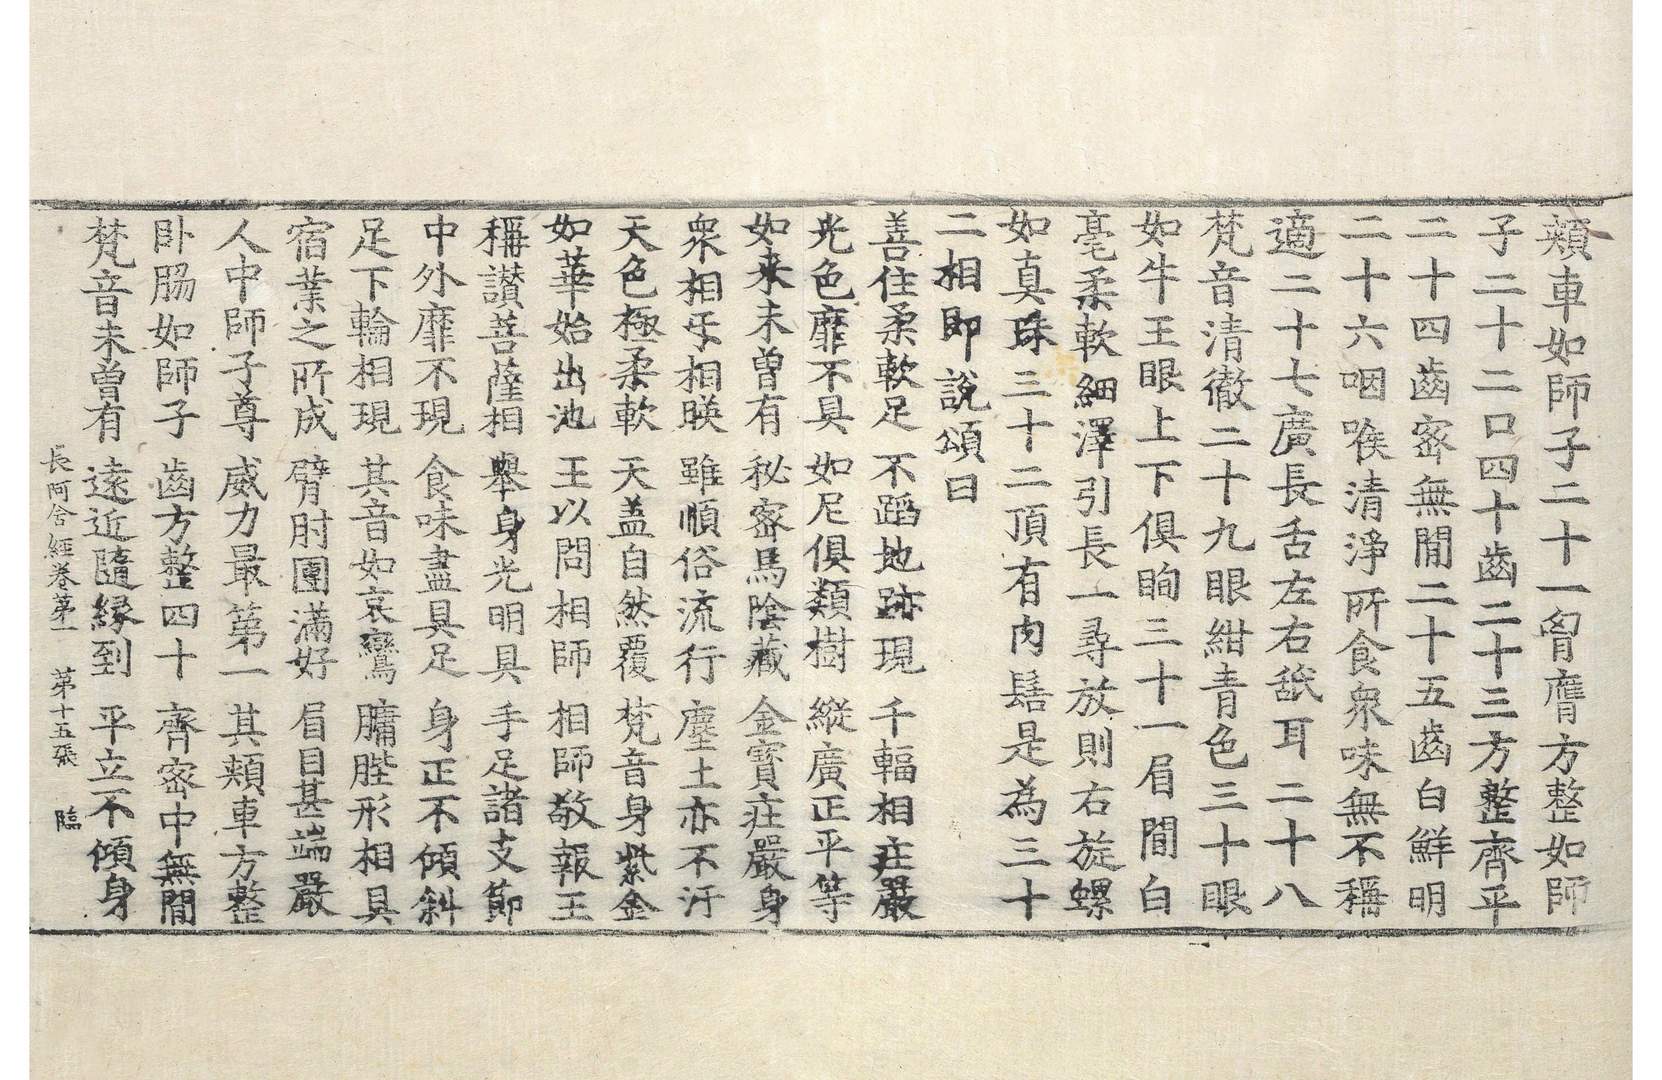 頰車如師子二十一胷膺方整如師
子二十二口四十齒二十三方整齊平
二十四齒密無閒二十五齒白鮮明
二十六咽喉清淨所食衆味無不稱
適二十七廣長舌左右舐耳二十八
梵音清徹二十九眼紺青色三十眼
如牛王眼上下俱眴三十一眉閒白
毫柔軟細澤引長一尋放則右旋螺
如真珠三十二頂有肉髻是為三十
二相即說頌曰
善住柔軟足 不蹈地跡現 千輻相莊嚴
光色靡不具 如尼俱類樹 縱廣正平等
如来未曾有 秘密馬陰藏 金寶莊嚴身
衆相㸦相暎 雖順俗流行 塵土亦不汙
天色極柔軟 天盖自然覆 梵音身紫金
如華始出池 王以問相師 相師敬報王
稱讃菩薩相 舉身光明具 手足諸支節
中外靡不現 食味盡具足 身正不傾斜
足下輪相現 其音如哀鸞 𦟛䏶形相具
宿業之所成 臂肘團滿好 眉目甚端嚴
人中師子尊 威力最第一 其頰車方整
卧脇如師子 齒方整四十 齊密中無閒
梵音未曾有 遠近隨緣到 平立不傾身
長阿含經卷第一 第十五張 臨